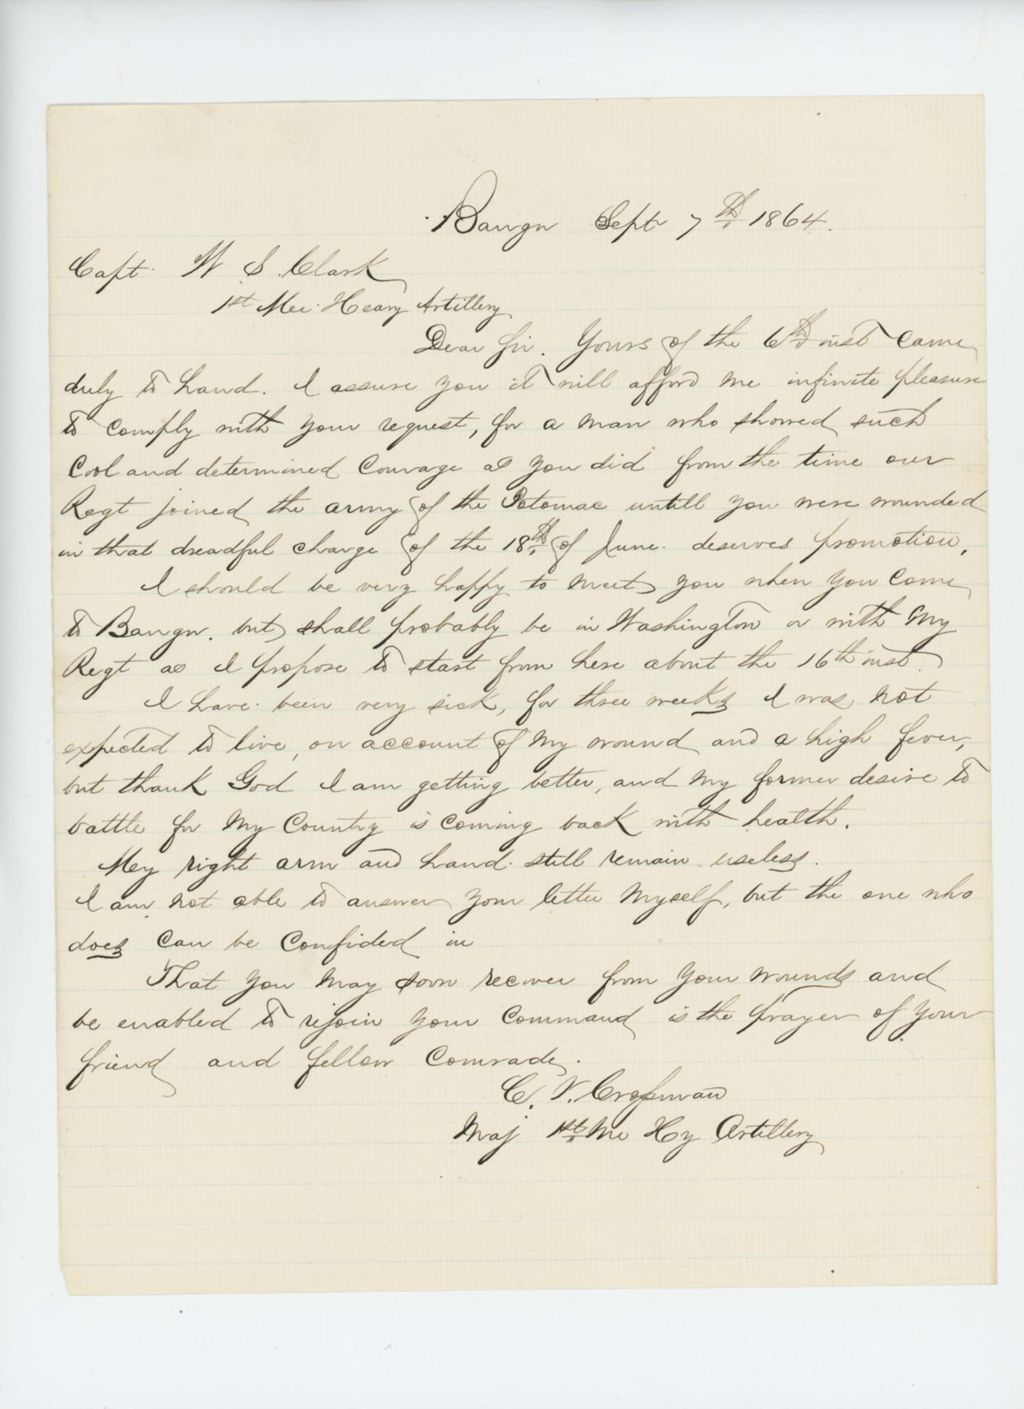 Bangor Sept 7th 1864.
Capt. W. S. Clark
1st Me. Heavy Artillery
Dear Sir. Yours of the 6th inst came
duly to hand. I assure you it will afford me infinite pleasure
to comply with your request, for a man who showed such
Cool and determined Courage as you did from the time our
Regt joined the army of the Potomac untill you were wounded
in that dreadful charge of the 18th of June. deserves promotion,
I should be very happy to meet you when you Come
to Bangor. but shall probably be in Washington or with My
Regt as I propose to start from here about the 16th inst.
I have been very sick, for three weeks I was not
expected to live, on account of My wound and a high fever,
but thank God I am getting better, and My former desire to
battle for My Country is Coming back with health.
My right arm and hand still remain useless.
I am not able to answer your letter Myself, but the one who
does Can be Confided in
That you May soon recover from your wounds and
be enabled to rejoin your Command is the prayer of your
friend and fellow Comrade.
C. V. Crossman
Maj 1st Me Hy Artillery